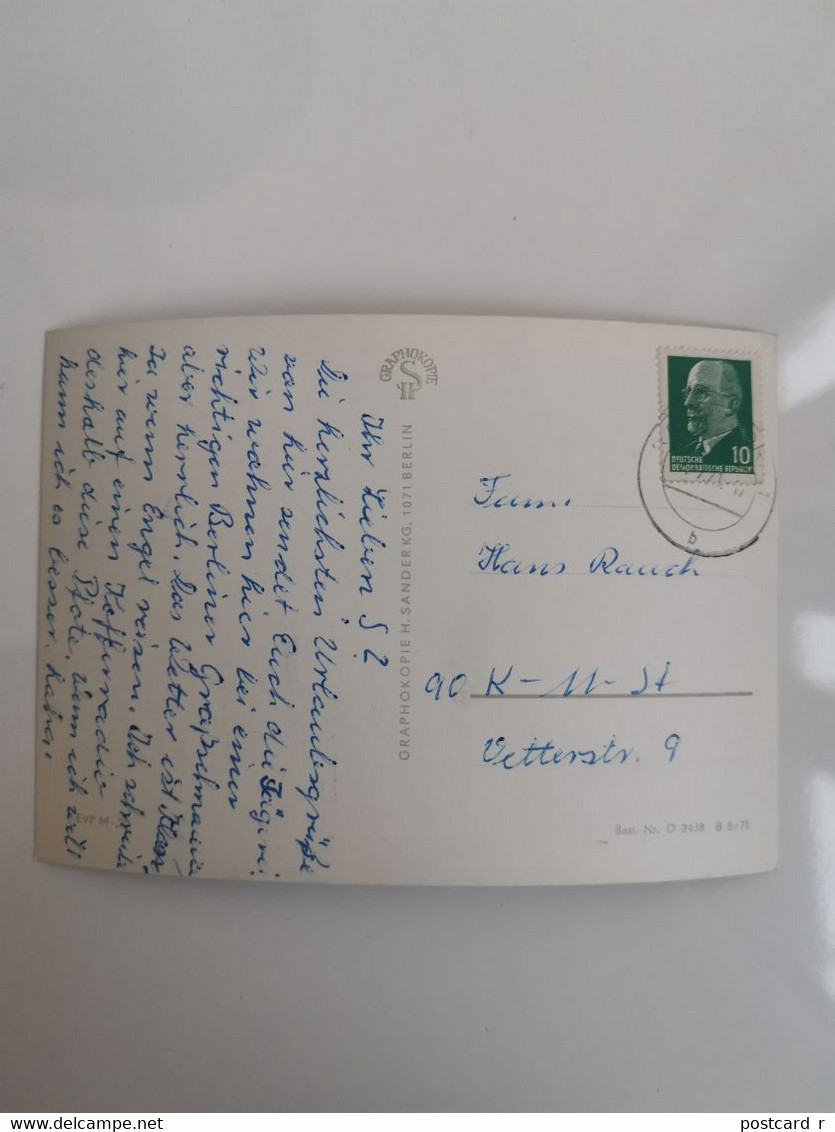 Ihr Lieben 5 ?
Die herzlichsten Urlaubsgrüße
von hier sendet Euch die Jägerei.
Wir wohnen hier bei einer
richtigen Berliner Großschnauze
aber herrlich. Das Wetter ist Klar
Ja wenn Engel reisen. Ich schreibe
hier auf einen Kofferradio
deshalb diese Pfote, wenn ich will
kann ich es besser.
GRAPHOKOPIE
H S
GRAPHOKOPIE H. SANDER KG, 1071 BERLIN
EVP M
10
DEUTSCHE
DEMOKRATISCHE REPUBLIK
b
Fam.
Hans Rauch
90 K-M-St
Vetterstr. 9
Best.-Nr. D 2438 B 8/71
delcampe.net
postcard r